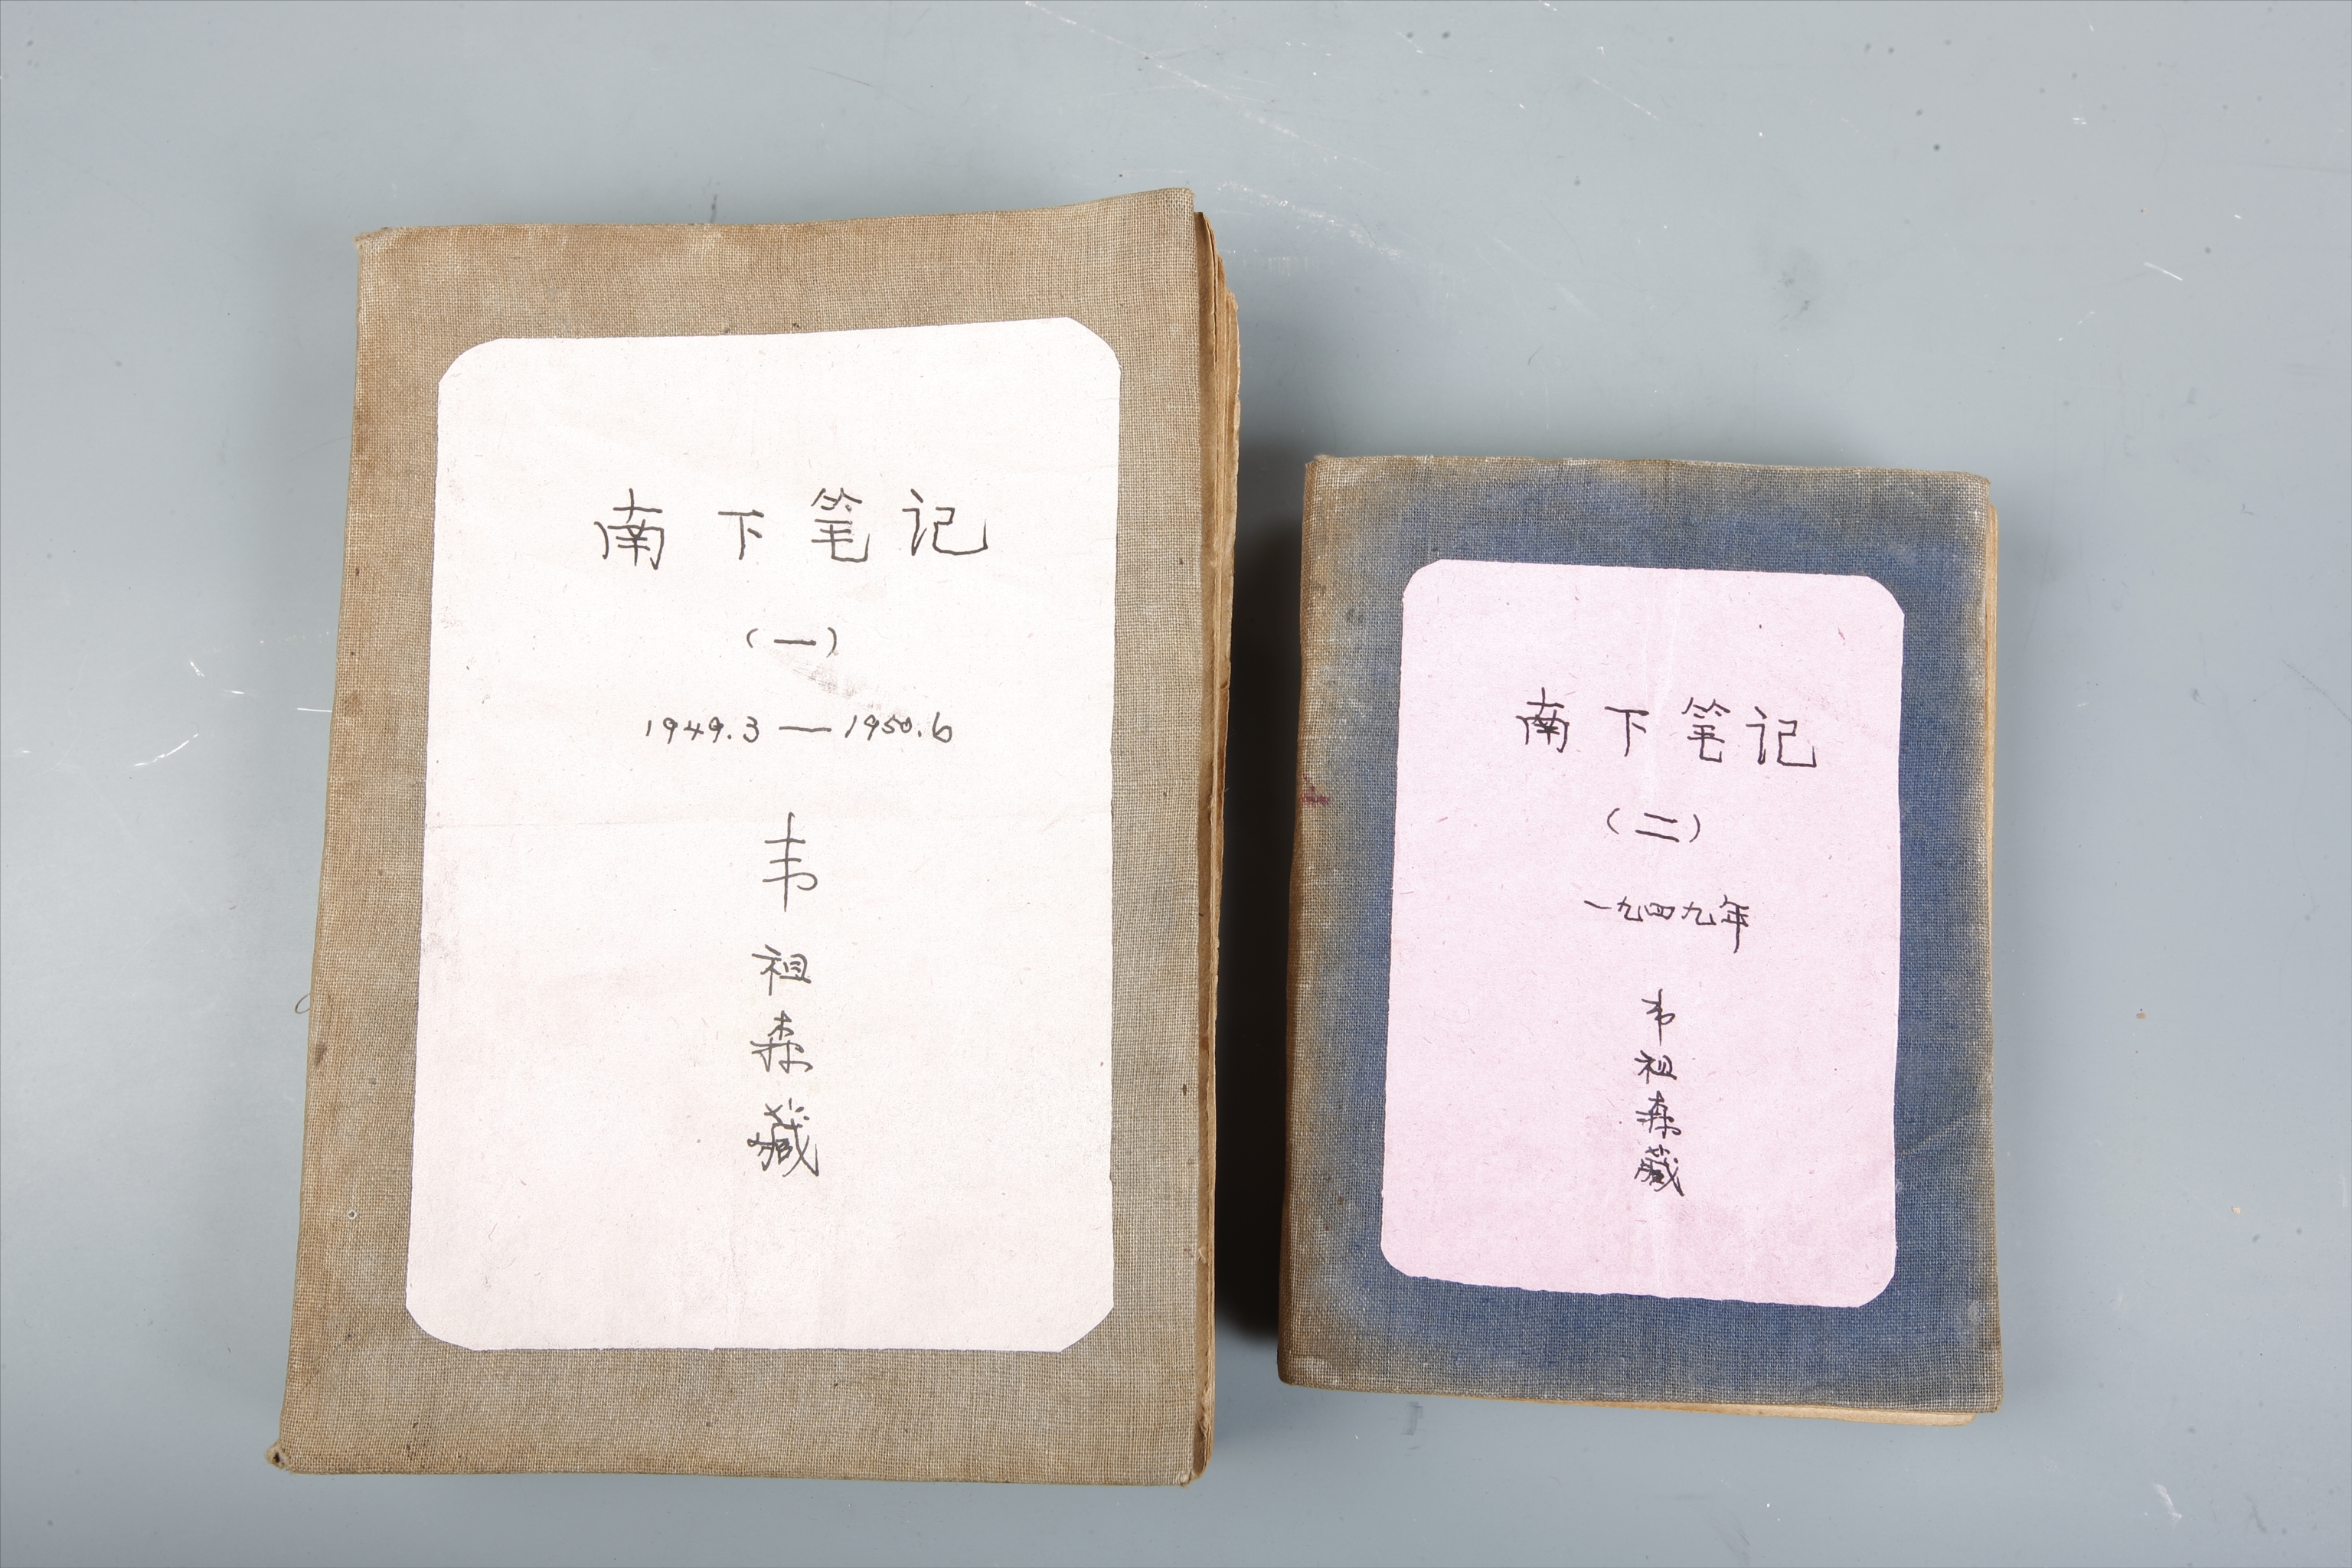 南下笔记
(一)
1949.3——1950.6
韦祖森藏
南下笔记
(二)
一九四九年
韦祖森藏